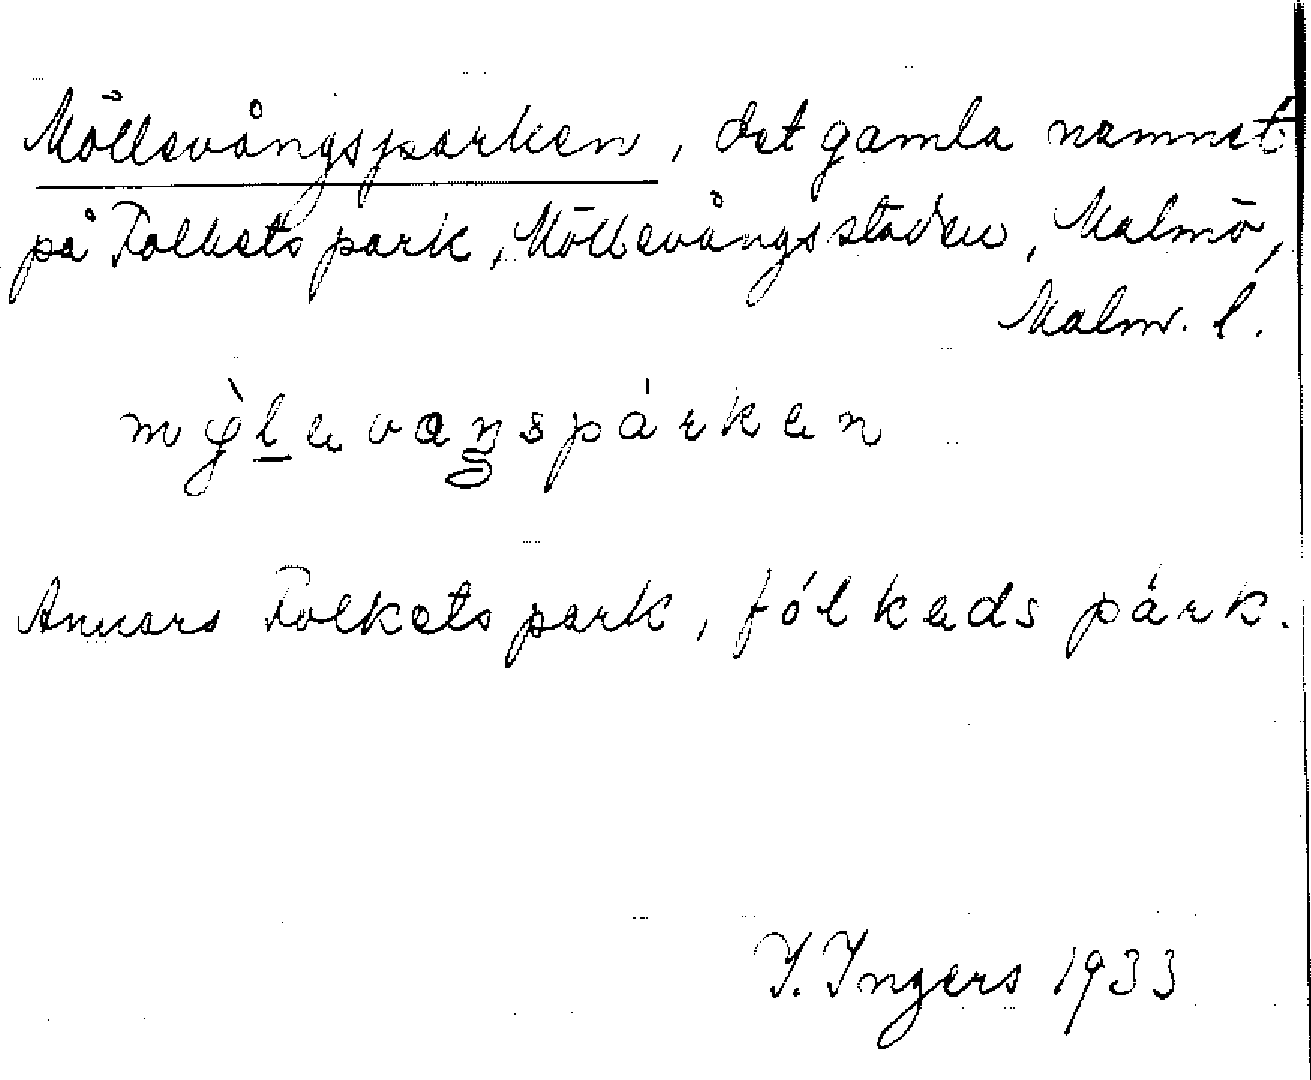 Möllevångsparken, det gamla namnet
på Folkets park, Möllevångsstaden, Malmö,
Malm. l.
mø̀levaŋspárken
Annars Folkets park, fólkeds párk.
I. Ingers 1933